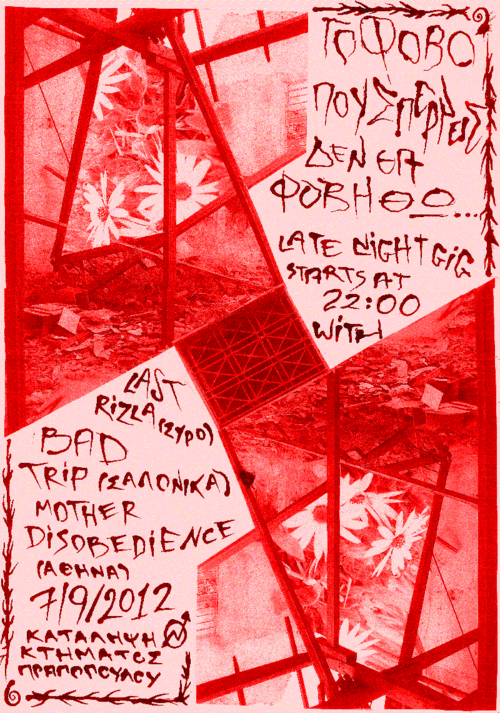 ΤΟ ΦΟΒΟ
ΠΟΥ ΣΠΕΡΝΕΙΣ
ΔΕΝ ΘΑ
ΦΟΒΗΘΩ...
LATE NIGHT GIG
STARTS AT
22:00
WITH
LAST
RIZLA (ΣΥΡΟ)
BAD
TRIP (ΣΑΛΟΝΙΚΑ)
MOTHER
DISOBEDIENCE
(ΑΘΗΝΑ)
7/9/2012
ΚΑΤΑΛΗΨΗ
ΚΤΗΜΑΤΟΣ
ΠΡΑΠΟΠΟΥΛΟΥ